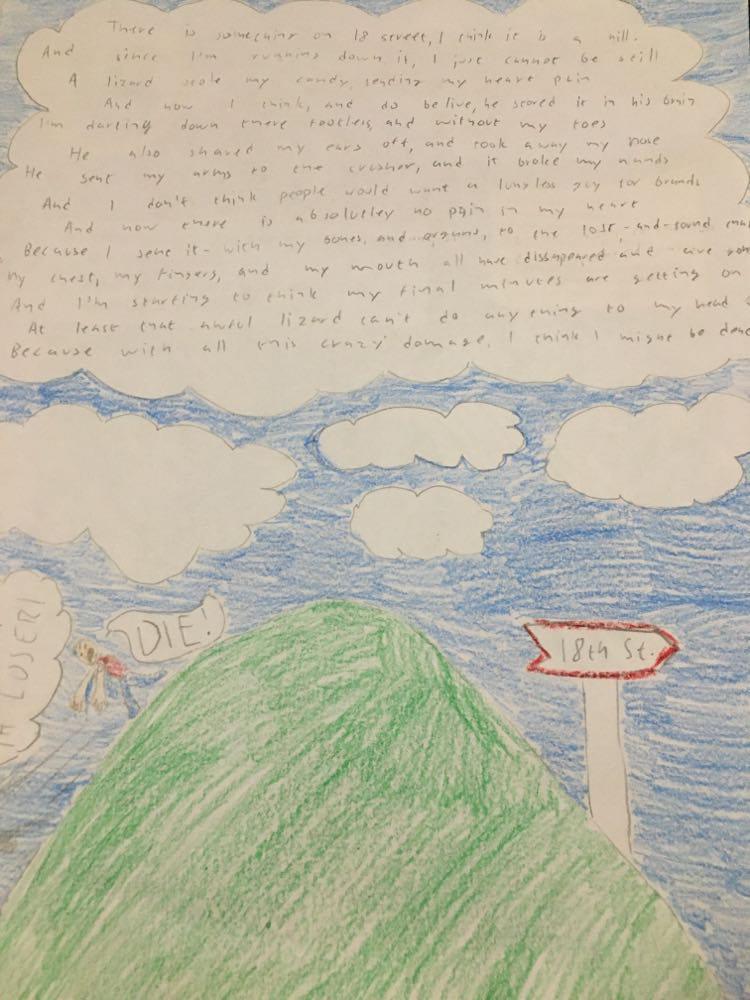 There is something on 18 street, I think it is a hill.
And since I'm running down it, I just cannot be still
A lizard stole my candy, sending my heart pain
And now I think, and do belive, he stored it in his brain
I'm darting down there footless, and without my toes
He also shaved my ears off, and took away my nose
He sent my arms to the crusher, and it broke my hands
And I don't think people would want a lungless guy for brands
And now there is absolutley no pain in my heart
Because I sent it - with my bones, and organs, to the lost-and-found
My chest, my fingers, and my mouth all have dissapeared and
And I'm starting to think my final minutes are getting on
At least that awful lizard can't do anything to my head
Because with all this crazy damage, I think I might be dead
DIE!
18th St.
A LOSER!